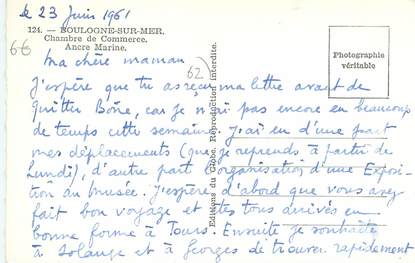 le 23 Juin 1961
124. — BOULOGNE-SUR-MER.
Chambre de Commerce.
Ancre Marine.
66
62)
Photographie
véritable
Éditions du Globe. Reproduction interdite.
Ma chère maman
J'espère que tu as reçu ma lettre avant de
quitter Bône, car je n'ai pas encore eu beaucoup
de temps cette semaine. J'ai eu d'une part
mes déplacements (que je reprends à partir de
Lundi), d'autre part l'organisation d'une Exposi-
tion au musée. J'espère d'abord que vous avez
fait bon voyage et êtes tous arrivés en
bonne forme à Tours. Ensuite je souhaite
à Solange et à Georges de trouver rapidement